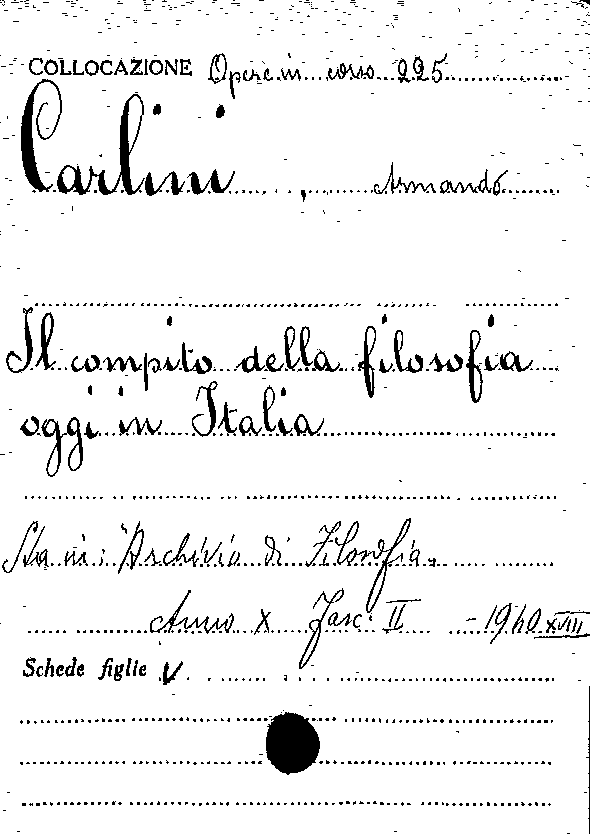 COLLOCAZIONE Opere in corso 225
Carlini, Armando
Il compito della filosofia
oggi in Italia
Sta in: "Archivio di Filosofia"
Anno X Fasc. II - 1940 XVIII
Schede figlie V